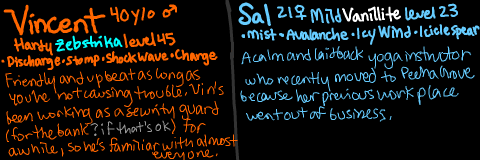 Vincent 40 y/o ♂
Hardy Zebstrika level 45
• Discharge • Stomp • Shock Wave • Charge
Friendly and upbeat as long as
you're not causing trouble. Vin's
been working as a security guard
(for the bank? if that's ok) for
awhile, so he's familiar with almost
everyone.
Sal 21 ♀ Mild Vanillite level 23
• mist • Avalanche • Icy Wind • Icicle spear
A calm and laidback yoga instructor
who recently moved to Peeha Grove
because her previous work place
went out of business.